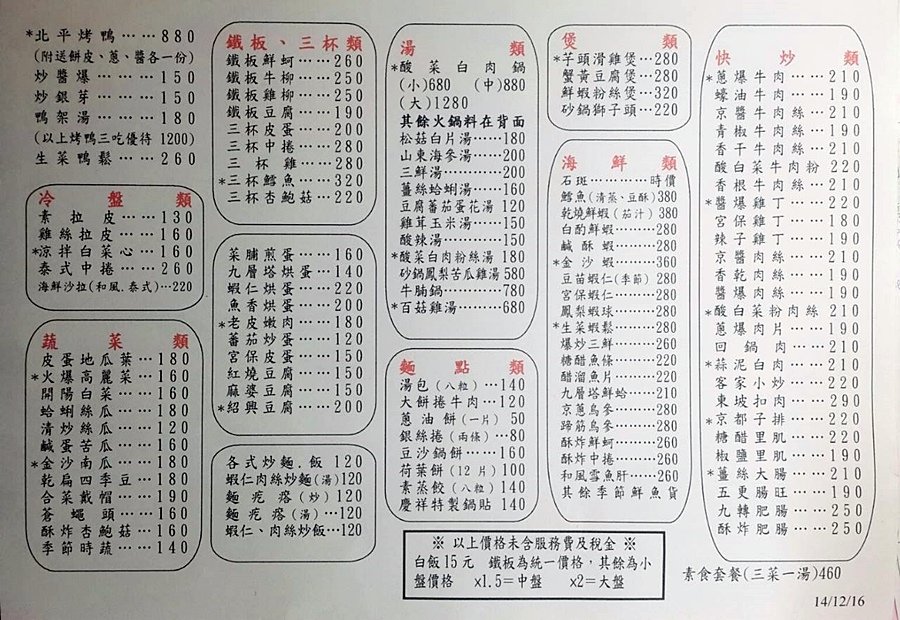 *北平烤鴨‧‧‧880
(附送餅皮、蔥、醬各一份)
炒醬爆‧‧‧‧150
炒銀芽‧‧‧‧150
鴨架湯‧‧‧‧180
(以上烤鴨三吃優待 1200)
生菜鴨鬆‧‧‧260
冷盤類
素拉皮‧‧‧‧130
雞絲拉皮‧‧‧160
*涼拌白菜心‧‧160
泰式中捲‧‧‧260
海鮮沙拉(和風.泰式)‧‧‧220
蔬菜類
皮蛋地瓜葉‧‧‧180
*火爆高麗菜‧‧‧160
開陽白菜‧‧‧160
蛤蜊絲瓜‧‧‧180
清炒絲瓜‧‧‧120
鹹蛋苦瓜‧‧‧160
*金沙南瓜‧‧‧180
乾扁四季豆‧‧180
合菜戴帽‧‧‧190
蒼蠅頭‧‧‧‧160
酥炸杏鮑菇‧‧‧160
季節時蔬‧‧‧140
鐵板、三杯類
鐵板鮮蚵‧‧‧‧260
鐵板牛柳‧‧‧250
鐵板雞柳‧‧‧250
鐵板豆腐‧‧‧190
三杯皮蛋‧‧‧200
三杯中捲‧‧‧280
三杯雞‧‧‧‧280
*三杯鱈魚‧‧‧320
三杯杏鮑菇‧‧220
菜脯煎蛋‧‧‧160
九層塔烘蛋‧‧‧140
蝦仁烘蛋‧‧‧220
魚香烘蛋‧‧‧200
*老皮嫩肉‧‧‧180
蕃茄炒蛋‧‧‧120
宮保皮蛋‧‧‧150
紅燒豆腐‧‧‧150
麻婆豆腐‧‧‧150
*紹興豆腐‧‧‧200
各式炒麵.飯 120
蝦仁肉絲炒麵(湯)120
麵疙瘩(炒) 120
麵疙瘩(湯)‧‧‧120
蝦仁、肉絲炒飯‧‧‧120
湯類
*酸菜白肉鍋
(小)680 (中)880
(大)1280
其餘火鍋料在背面
松菇白片湯‧‧‧‧180
山東海參湯‧‧‧‧200
三鮮湯‧‧‧‧‧200
薑絲蛤蜊湯‧‧‧‧160
豆腐蕃茄蛋花湯 120
雞茸玉米湯‧‧‧‧150
酸辣湯‧‧‧‧‧150
*酸菜白肉粉絲湯 180
砂鍋鳳梨苦瓜雞湯 580
牛腩鍋‧‧‧‧‧780
*百菇雞湯‧‧‧‧680
麵點類
湯包(八粒)‧‧‧140
大餅捲牛肉‧‧‧120
蔥油餅(一片) 50
銀絲捲(兩條)‧‧‧80
豆沙鍋餅‧‧‧‧160
荷葉餅(12片) 100
素蒸餃(八粒) 140
慶祥特製鍋貼 140
煲類
*芋頭滑雞煲‧‧‧280
蟹黃豆腐煲‧‧‧280
鮮蝦粉絲煲‧‧‧320
砂鍋獅子頭‧‧‧220
海鮮類
石斑‧‧‧‧‧‧時價
鱈魚(清蒸、豆酥)380
乾燒鮮蝦(茄汁)380
白酌鮮蝦‧‧‧‧280
鹹酥蝦‧‧‧‧‧280
*金沙蝦‧‧‧‧‧360
豆苗蝦仁(季節) 280
宮保蝦仁‧‧‧‧280
鳳梨蝦球‧‧‧‧280
*生菜蝦鬆‧‧‧‧280
爆炒三鮮‧‧‧‧260
糖醋魚條‧‧‧‧220
醋溜魚片‧‧‧‧220
九層塔鮮蛤‧‧‧210
京蔥烏參‧‧‧‧280
蹄筋烏參‧‧‧‧280
酥炸鮮蚵‧‧‧‧260
酥炸中捲‧‧‧‧260
和風雪魚肝‧‧‧260
其餘季節鮮魚貨
快炒類
*蔥爆牛肉‧‧‧‧210
蠔油牛肉‧‧‧190
京醬牛肉絲‧‧‧210
青椒牛肉絲‧‧‧190
香干牛肉絲‧‧‧210
酸白菜牛肉粉 220
香根牛肉絲‧‧‧210
*醬爆雞丁‧‧‧220
宮保雞丁‧‧‧180
辣子雞丁‧‧‧190
京醬肉絲‧‧‧190
香乾肉絲‧‧‧190
醬爆肉絲‧‧‧190
*酸白菜粉肉絲 210
蔥爆肉片‧‧‧190
回鍋肉‧‧‧‧210
*蒜泥白肉‧‧‧210
客家小炒‧‧‧220
東坡扣肉‧‧‧290
*京都子排‧‧‧220
糖醋里肌‧‧‧220
椒鹽里肌‧‧‧190
*薑絲大腸‧‧‧210
五更腸旺‧‧‧190
九轉肥腸‧‧‧250
酥炸肥腸‧‧‧250
※ 以上價格未含服務費及稅金 ※
白飯15元 鐵板為統一價格，其餘為小
盤價格 x1.5=中盤 x2=大盤
素食套餐(三菜一湯)460
14/12/16